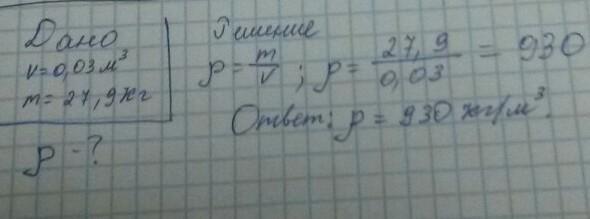 Дано
V=0,03 м³
m=27,9 кг
ρ-?
Решение
ρ=m/V; ρ=27,9/0,03=930
Ответ: ρ=930 кг/м³.